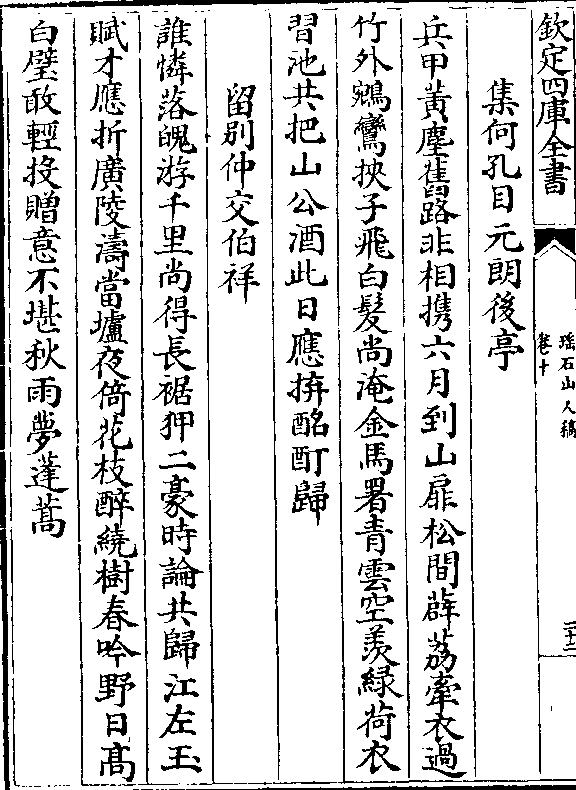 欽定四庫全書
瑤石山人稿
卷十
二十二
集何孔目元朗後亭
兵甲黃塵舊路非相携六月到山扉松間薜荔牽衣過
竹外鵷鸞挾子飛白髮尚淹金馬署青雲空羡緑荷衣
習池共把山公酒此日應拚酩酊歸
留别仲交伯祥
誰憐落魄游千里尚得長裾狎二豪時論共歸江左玉
賦才應折廣陵濤當壚夜倚花枝醉繞樹春吟野日髙
白璧敢輕投贈意不堪秋雨夢蓬蒿